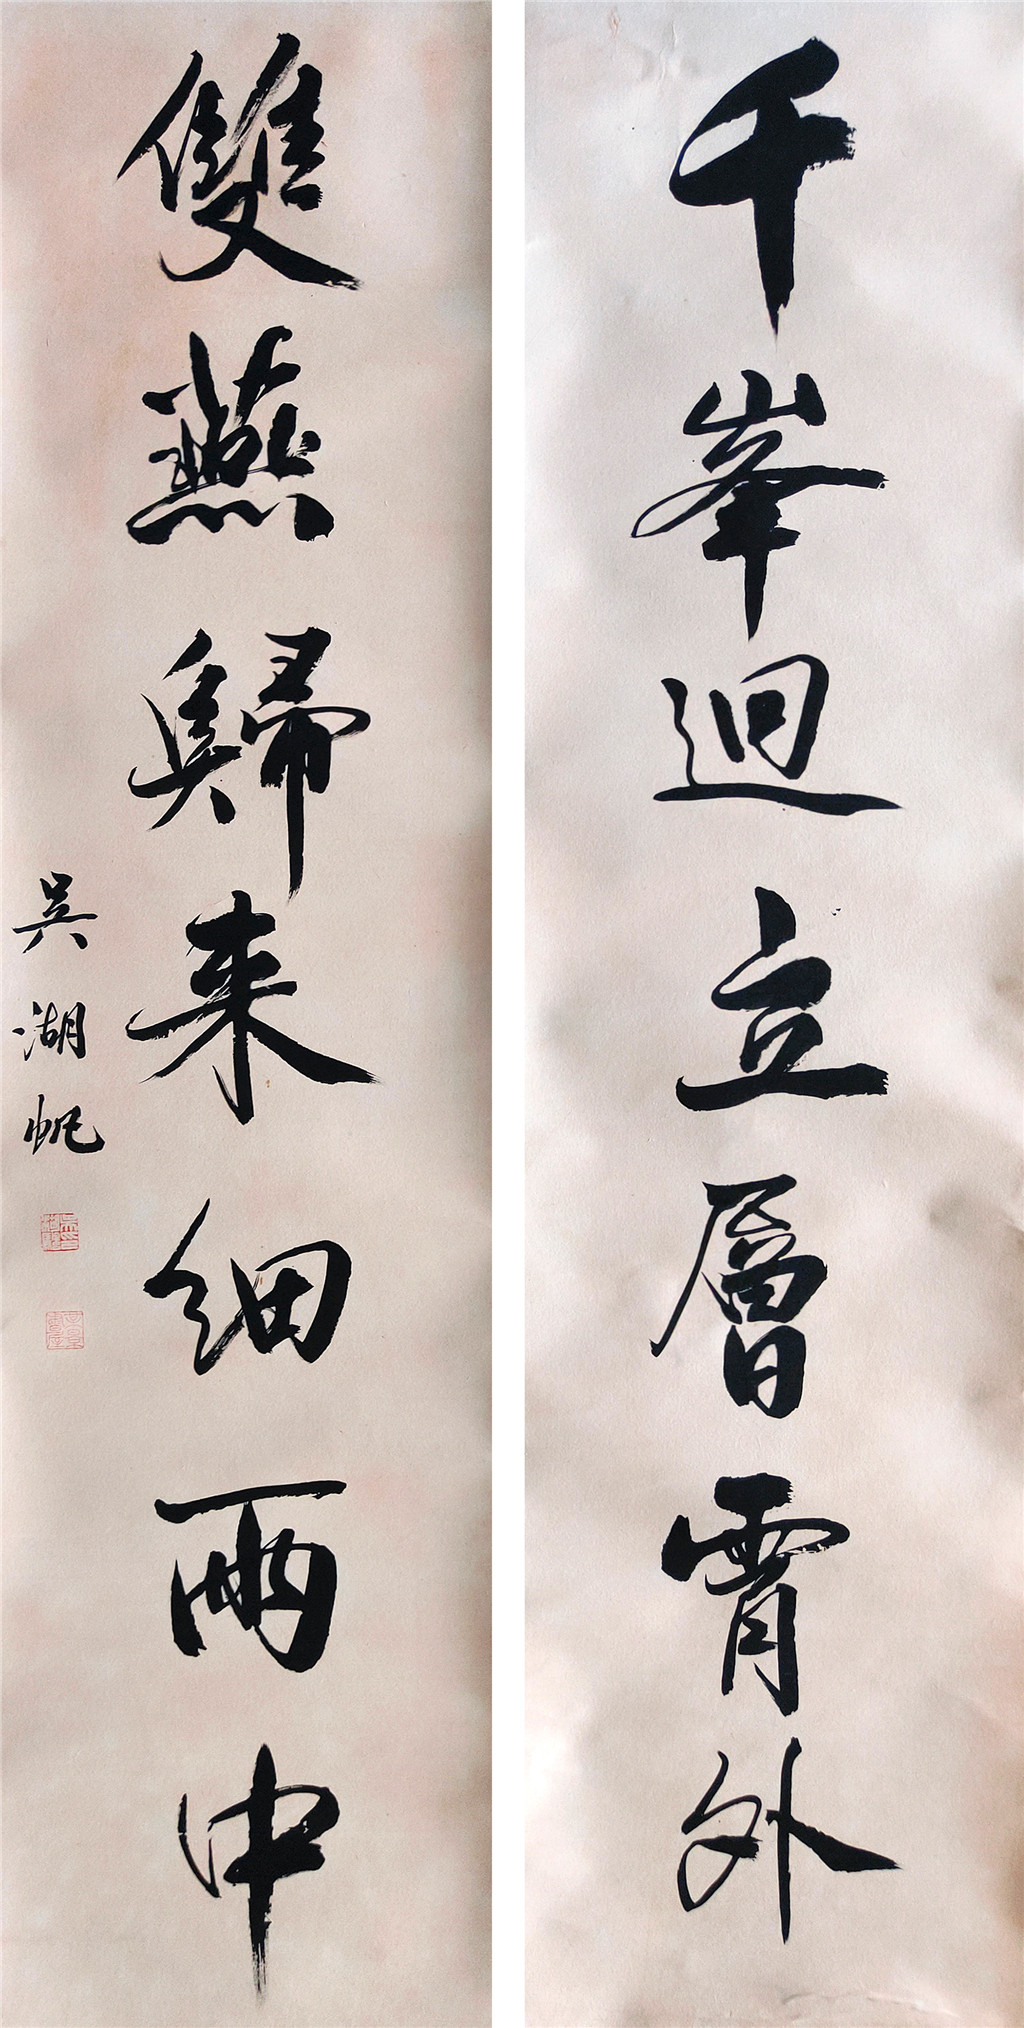 千峯迴立層霄外
雙燕歸来细雨中
吴湖帆